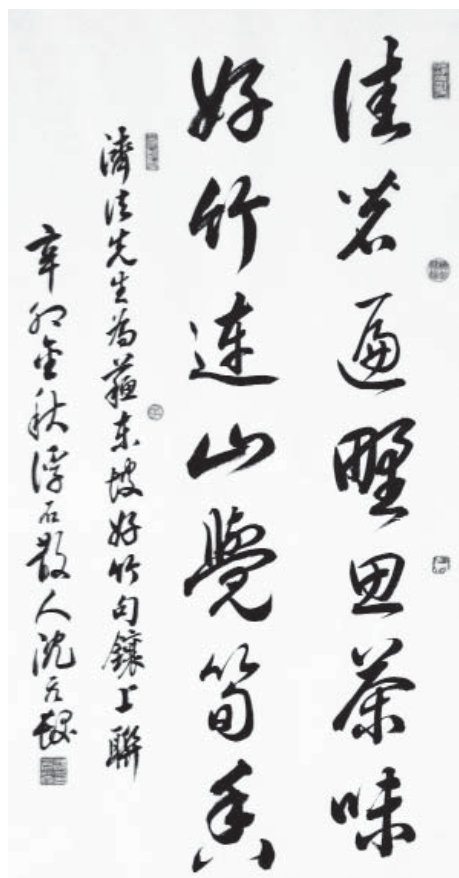 佳茗遍野思茶味
好竹連山覺筍香
濟法先生為蘇東坡好竹句鑲上聯
辛卯金秋浮石散人沈元魁